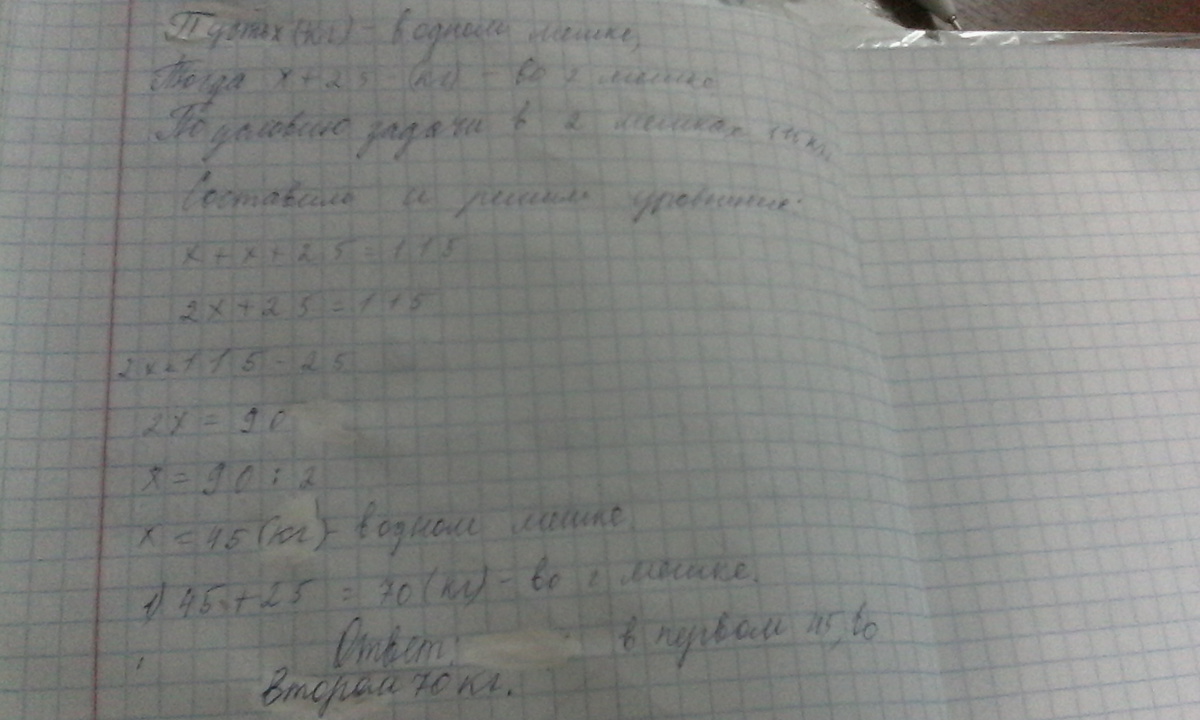 Пусть х (кг) - в одном мешке,
Тогда х + 25 (кг) - во 2 мешке
По условию задачи в 2 мешках 115 кг.
Составим и решим уравнение:
х + х + 25 = 115
2х + 25 = 115
2х = 115 - 25
2х = 90
х = 90 : 2
х = 45 (кг) - в одном мешке.
1) 45 + 25 = 70 (кг) - во 2 мешке.
Ответ: в первом 45, во
втором 70 кг.